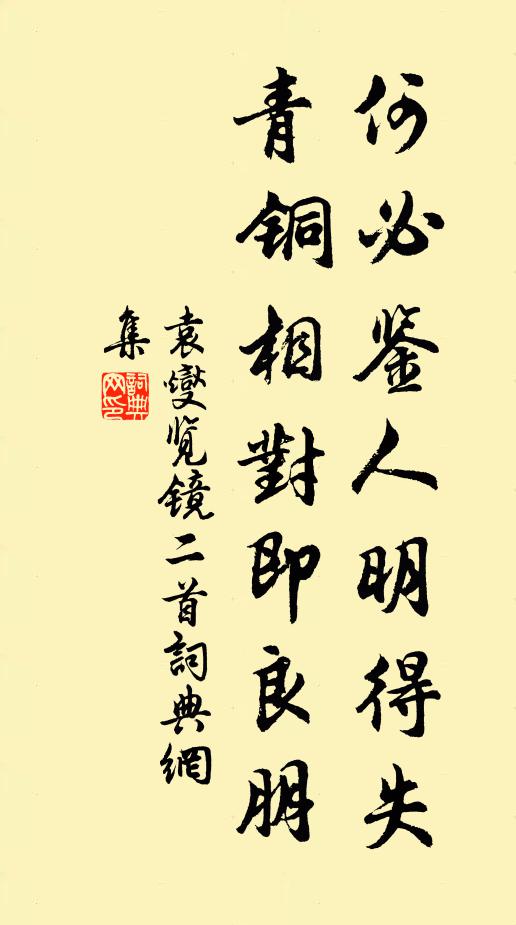 何必鉴人明得失
青铜相對即良朋
袁燮览镜二首詞典網
集
詞典
网印